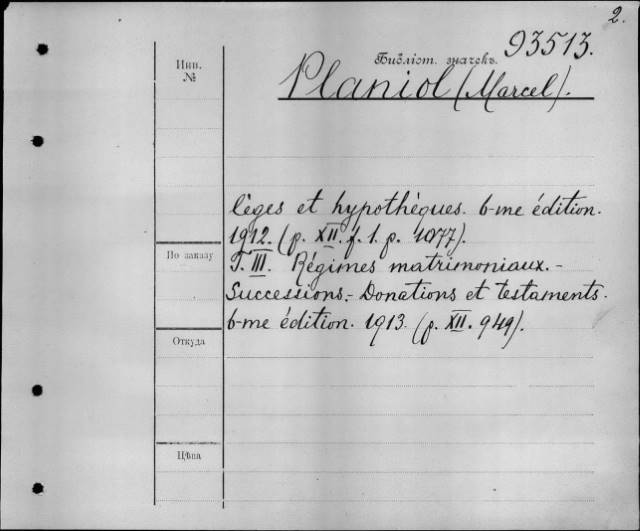 2.
Инв.
№
Библіот. значекъ.
93513.
Planiol (Marcel).
lèges et hypothèques. 6-me édition.
1912. (p. XII. f. 1. p. 1077).
По заказу
T. III. Régimes matrimoniaux.-
Successions.- Donations et testaments.
6-me édition. 1913. (p. XII. 949).
Откуда
Цѣна